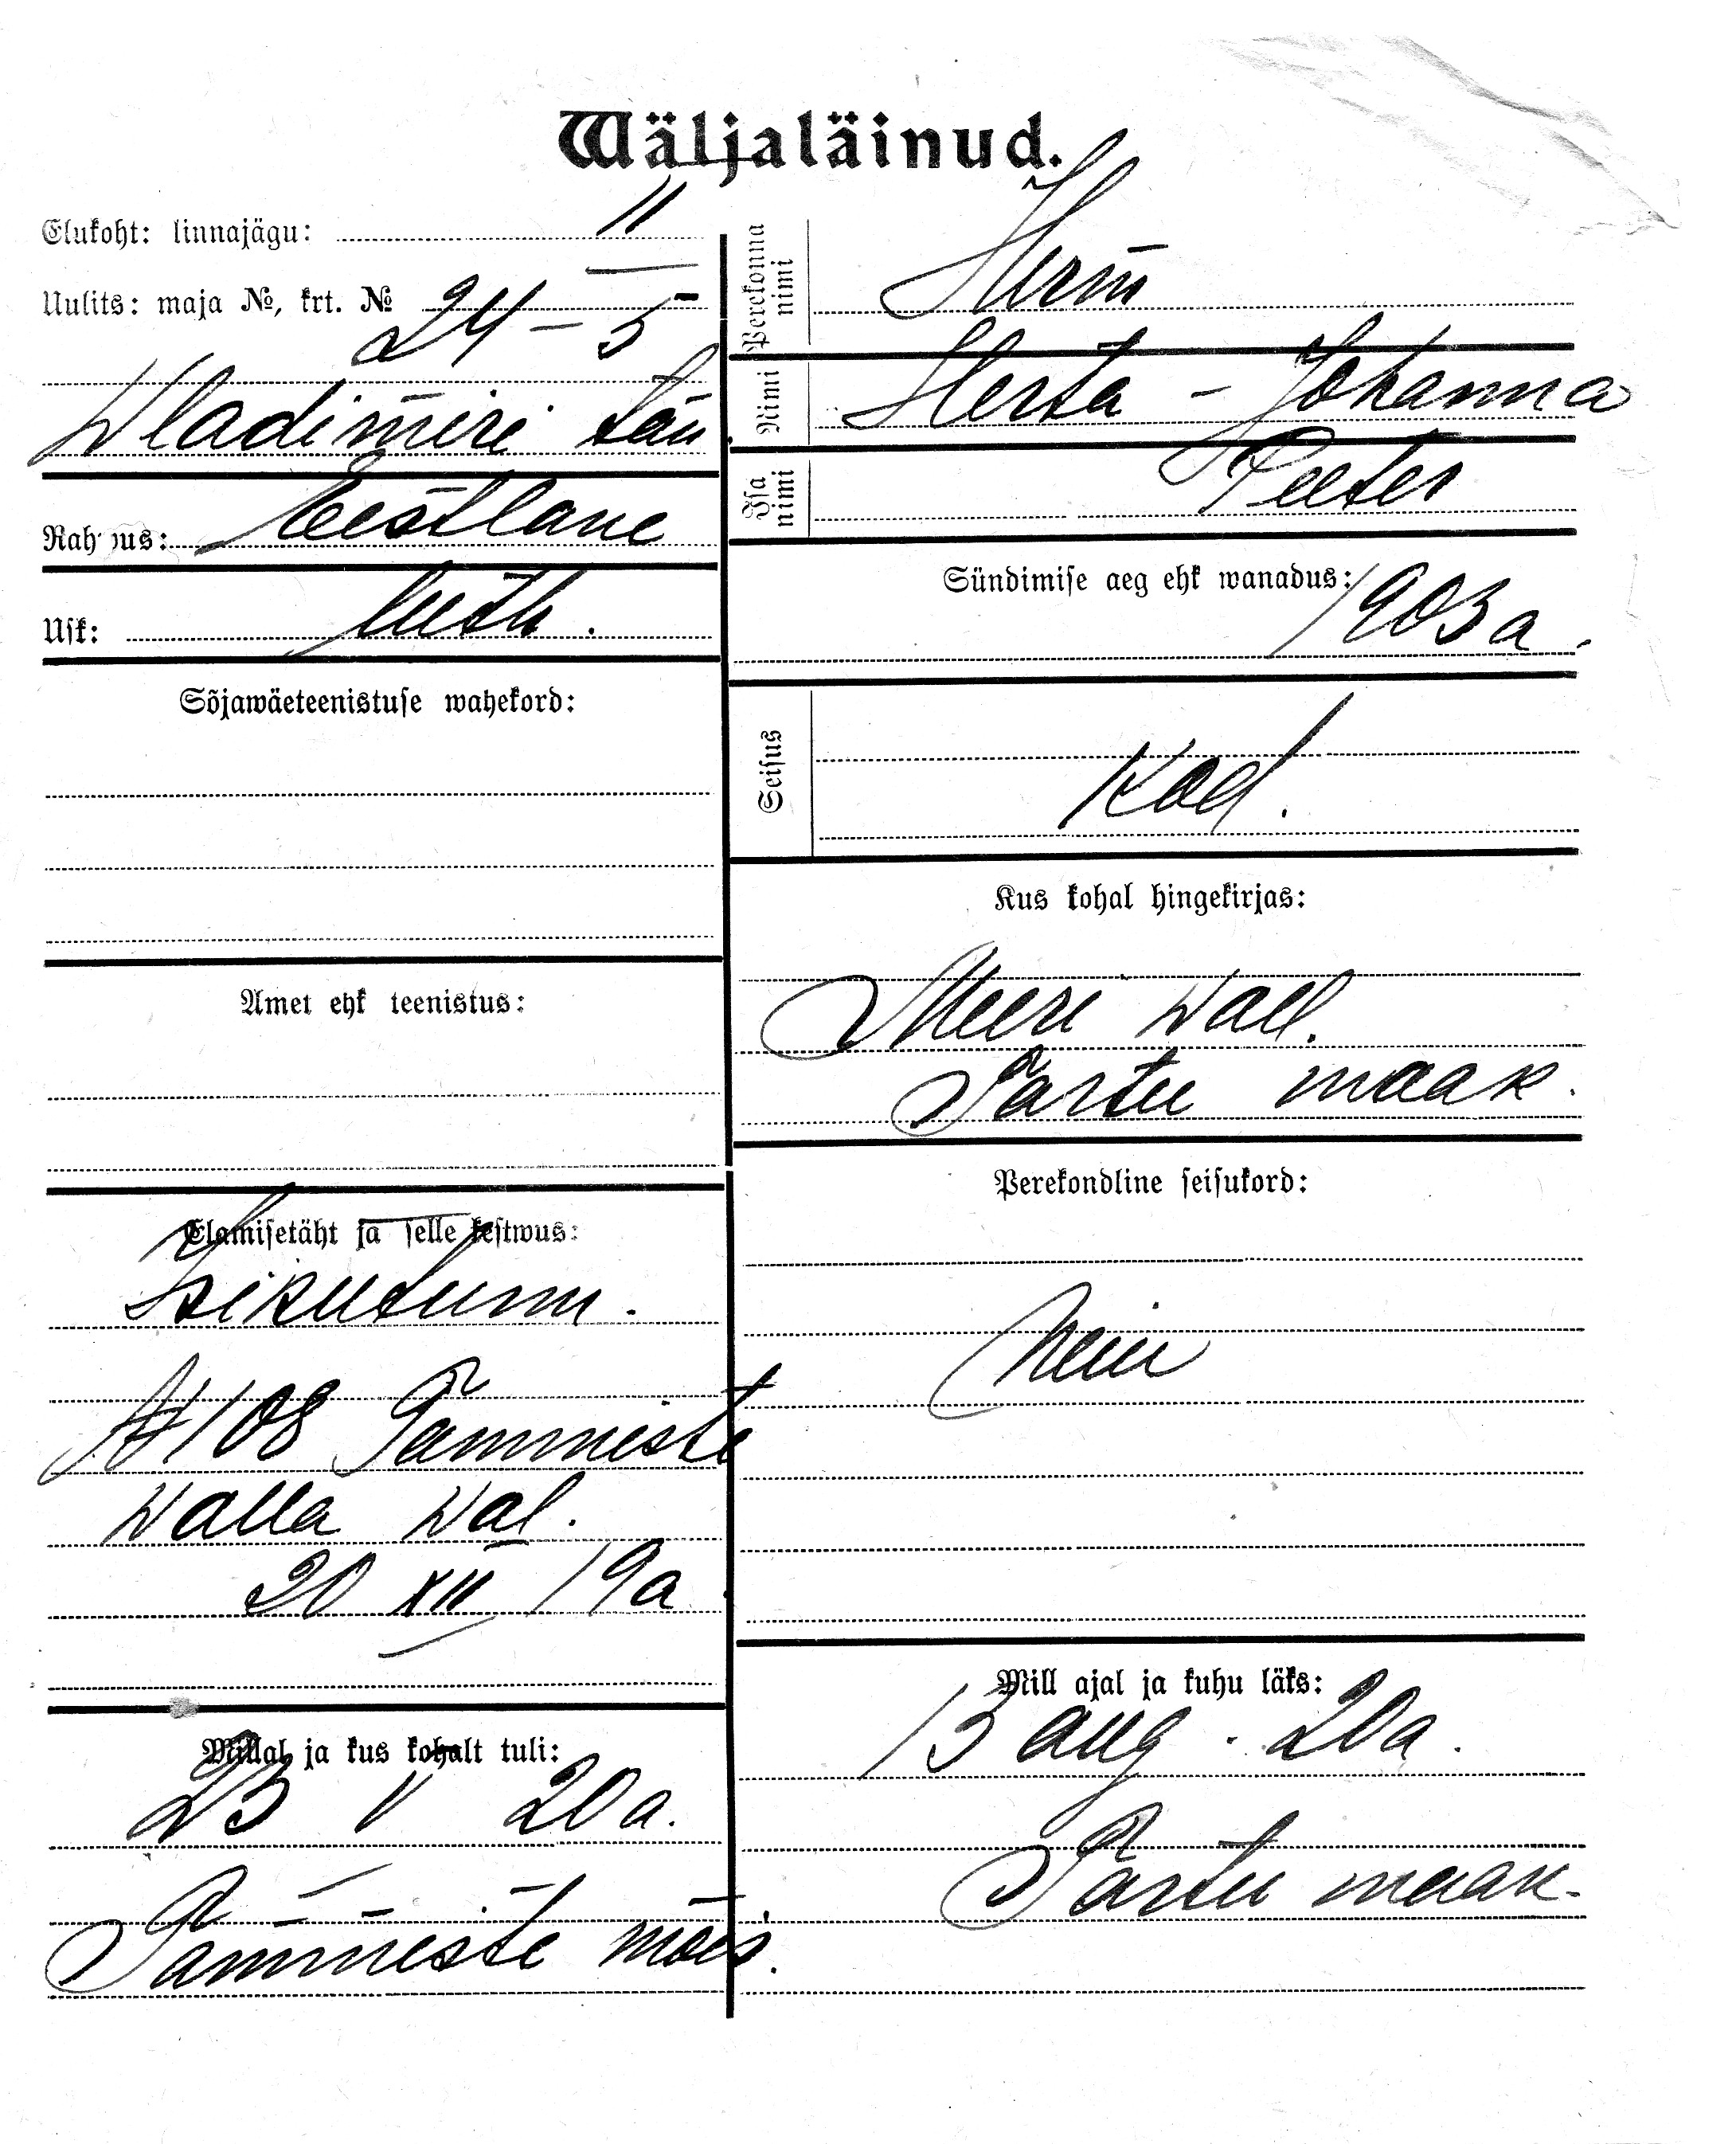 Wäljaläinud.
Elukoht: linnajägu: II
Uulits: maja №, krt. № 24 – 5
Wladimiri tän.
Rahwus: Eestlane
Usk: luth.
Sõjawäeteenistuse wahekord:
Amet ehk teenistus:
Elamisetäht ja selle kestwus:
Isikutunn.
№ 108 Tammiste
Walla Wal.
20 XII 19a
Millal ja kus kohalt tuli:
23 V 20a.
Tammiste mõis.
Perekonna nimi
Nimi Herta - Johanna
Isa nimi Peeter
Sündimise aeg ehk wanadus: 1903 a.
Seisus Kod.
Kus kohal hingekirjas:
Meeri wall.
Tartu maak.
Perekondline seisukord:
Neiu
Mill ajal ja kuhu läks:
13 aug. 20a.
Tartu maak.